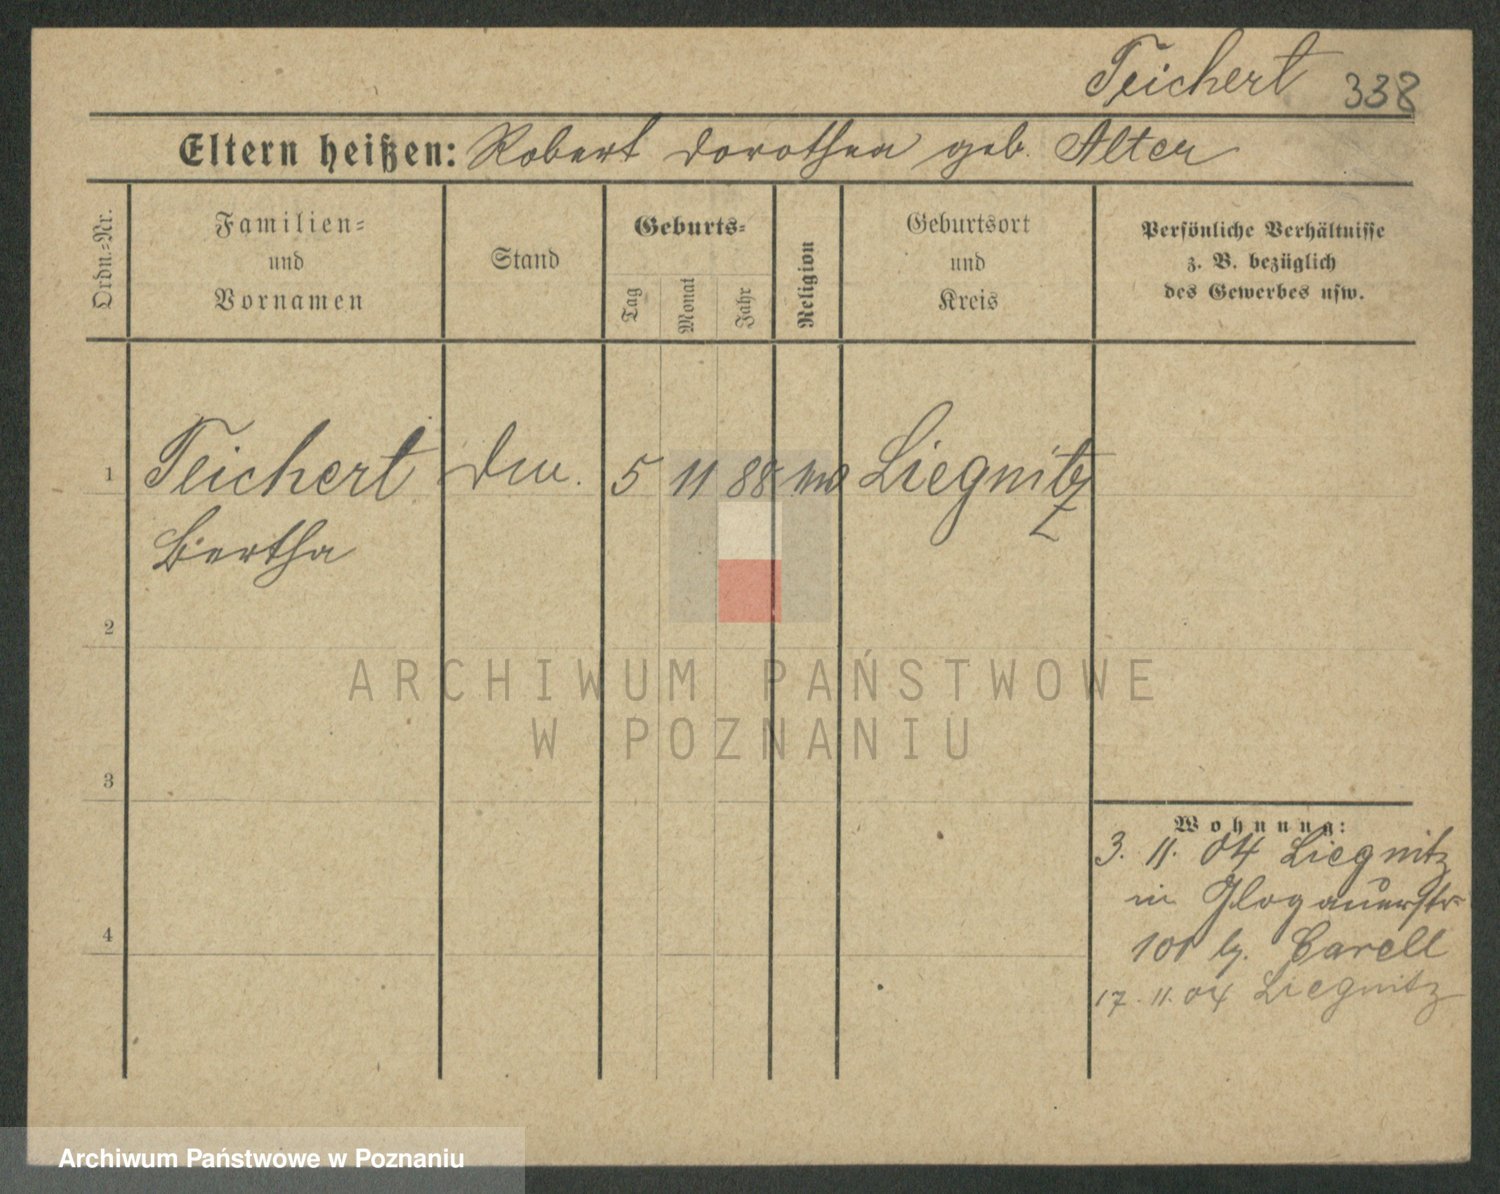 Teichert 338
Eltern heißen: Robert Dorothea geb. Alter
Ordn.=Nr.
Familien=
und
Vornamen
Stand
Geburts=
Tag
Monat
Jahr
Religion
Geburtsort
und
Kreis
Persönliche Verhältnisse
z. B. bezüglich
des Gewerbes usw.
1 Teichert 5 11 88 Liegnitz
Bertha
2
3
4
Wohnung:
3. 11. 04 Liegnitz
in Glogauerstr
b. Carell
17. 11. 04 Liegnitz
ARCHIWUM PAŃSTWOWE
W POZNANIU
Archiwum Państwowe w Poznaniu